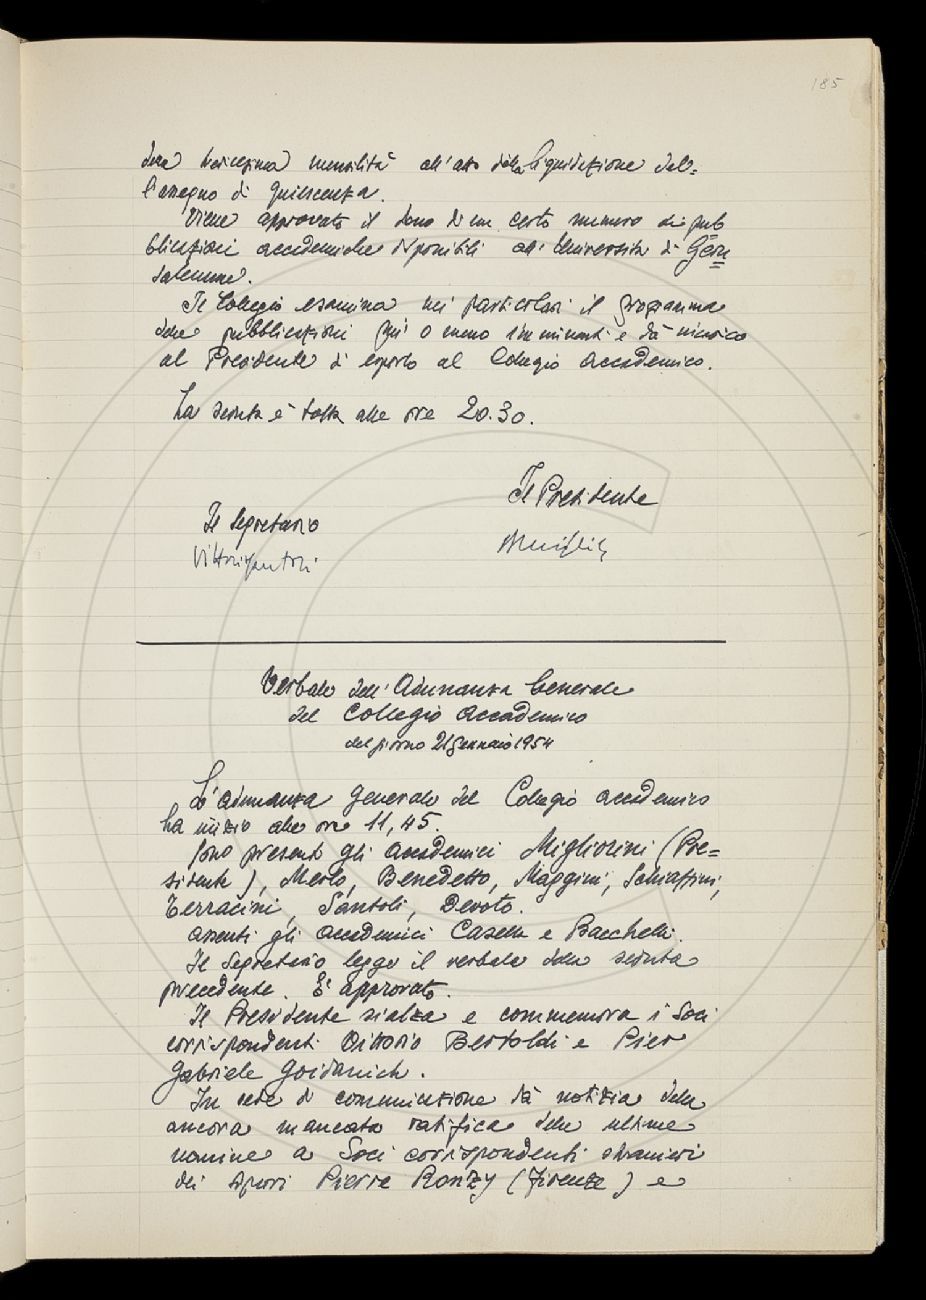 185
della tredicesima mensilità all'atto della liquidazione del=
l'assegno di quiescenza.
Viene approvato il dono di un certo numero di pub
blicazioni accademiche disponibili all'Università di Geru
salemme.
Il Collegio esamina nei particolari il programma
delle pubblicazioni più o meno imminenti e dà incarico
al Presidente di esporlo al Collegio Accademico.
La seduta è tolta alle ore 20.30.
Il Presidente
Il Segretario
Vittorio Santoli
Verbale dell'Adunanza Generale
del Collegio Accademico
del giorno 21 gennaio 1954
L'adunanza generale del Collegio accademico
ha inizio alle ore 11,45.
Sono presenti gli accademici Migliorini (Pre=
sidente), Merlo, Benedetto, Maggini, Schiaffini,
Terracini, Santoli, Devoto.
assenti gli accademici Casella e Bacchelli.
Il Segretario legge il verbale della seduta
precedente. È approvato.
Il Presidente si alza e commemora i Soci
corrispondenti Vittorio Bertoldi e Pier
Gabriele Goidanich.
In sede di comunicazione dà notizia della
ancora mancata ratifica delle ultime
nomine a Soci corrispondenti stranieri
dei signori Pierre Ronzy (Firenze) e